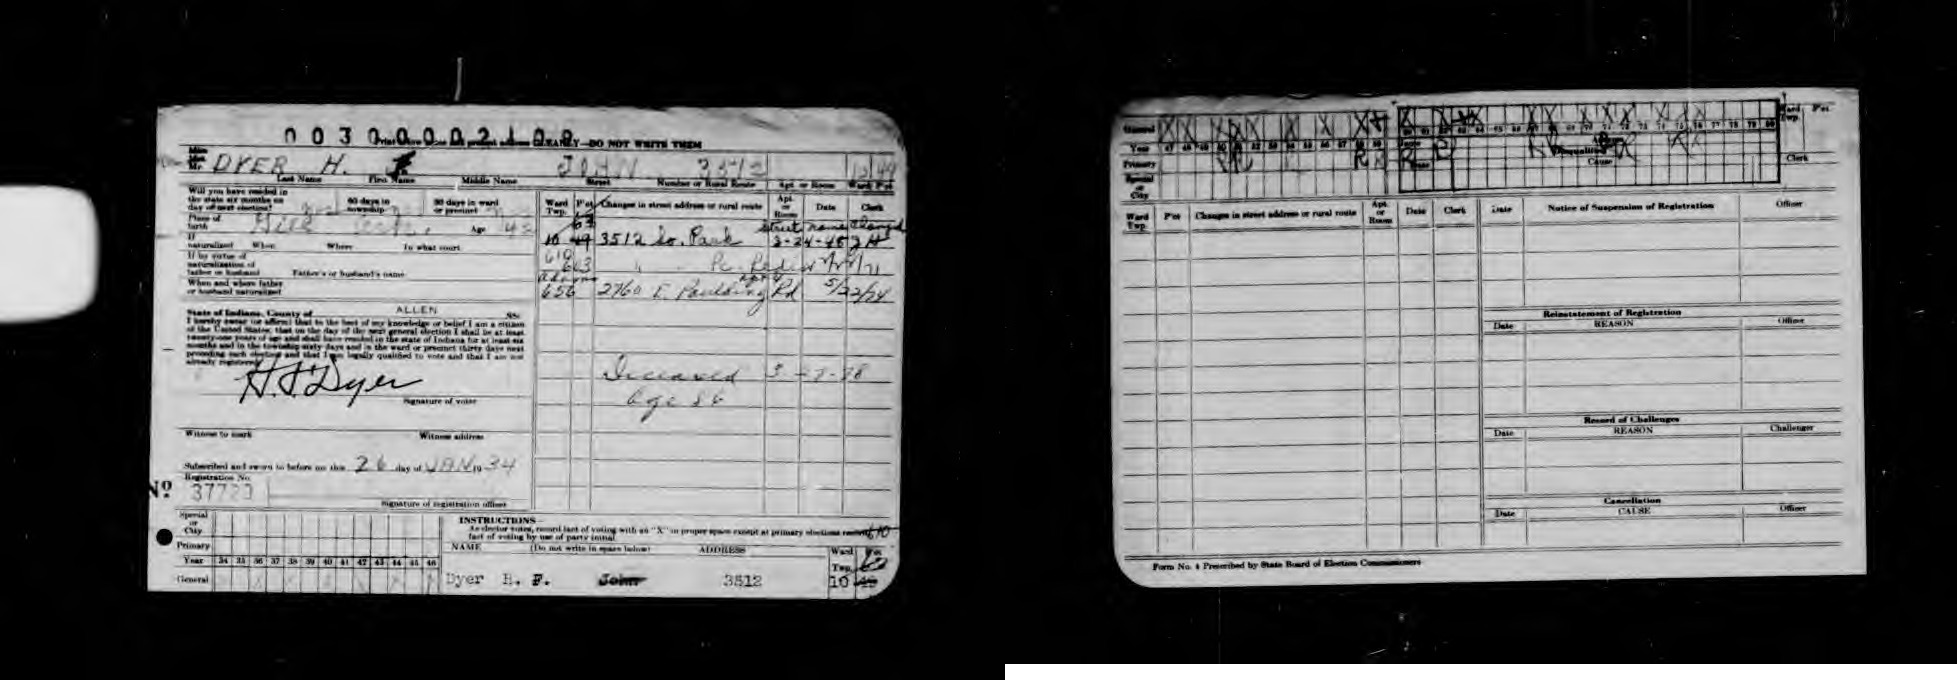 DYER H. JOHN 3512 12/49
Last Name First Name Middle Name Street Number or Rural Route Apt. or Room Ward P'ct
Will you have resided in
the state six months on
day of next election? 60 days in township 30 days in ward or precinct
Place of birth Age 42
If naturalized When Where In what court
If by virtue of
naturalization of
father or husband Father's or husband's name
When and where father
or husband naturalized
State of Indiana, County of ALLEN ss:
I hereby swear (or affirm) that to the best of my knowledge or belief I am a citizen
of the United States; that on the day of the next general election I shall be at least
twenty-one years of age and shall have resided in the state of Indiana for at least six
months and in the township sixty days and in the ward or precinct thirty days next
preceding such election and that I am legally qualified to vote and that I am not
already registered.
H. F. Dyer
Signature of voter
Witness to mark Witness address
Subscribed and sworn to before me this 26 day of JAN 1934
Registration No.
No 37723
Signature of registration officer
Ward Twp. P'ct Changes in street address or rural route Apt. or Room Date Clerk
63 Street name changed
10 49 3512 So. Park 2-24-48
610
663
656 2760 E. Paulding Rd 5/22/74
Deceased 3-7-78
Age 86
Special or City
Primary
Year 34 35 36 37 38 39 40 41 42 43 44 45 46
General
INSTRUCTIONS
As elector votes, record fact of voting with an "X" in proper space except at primary elections record
fact of voting by use of party initial.
NAME (Do not write in space below) ADDRESS Ward Twp. P'ct
Dyer H. F. John 3512 10 49
General
Year 47 48 49 50 51 52 53 54 55 56 57 58 59 60 61 62 63 64 65 66 67 68 69 70 71 72 73 74 75 76 77 78 79 80
Primary
Special or City
Disqualified
Cause
Ward Twp. P'ct
Clerk
Ward Twp. P'ct Changes in street address or rural route Apt. or Room Date Clerk
Date Notice of Suspension of Registration Officer
Reinstatement of Registration
Date REASON Officer
Record of Challenges
Date REASON Challenger
Cancellation
Date CAUSE Officer
Form No. 4 Prescribed by State Board of Election Commissioners